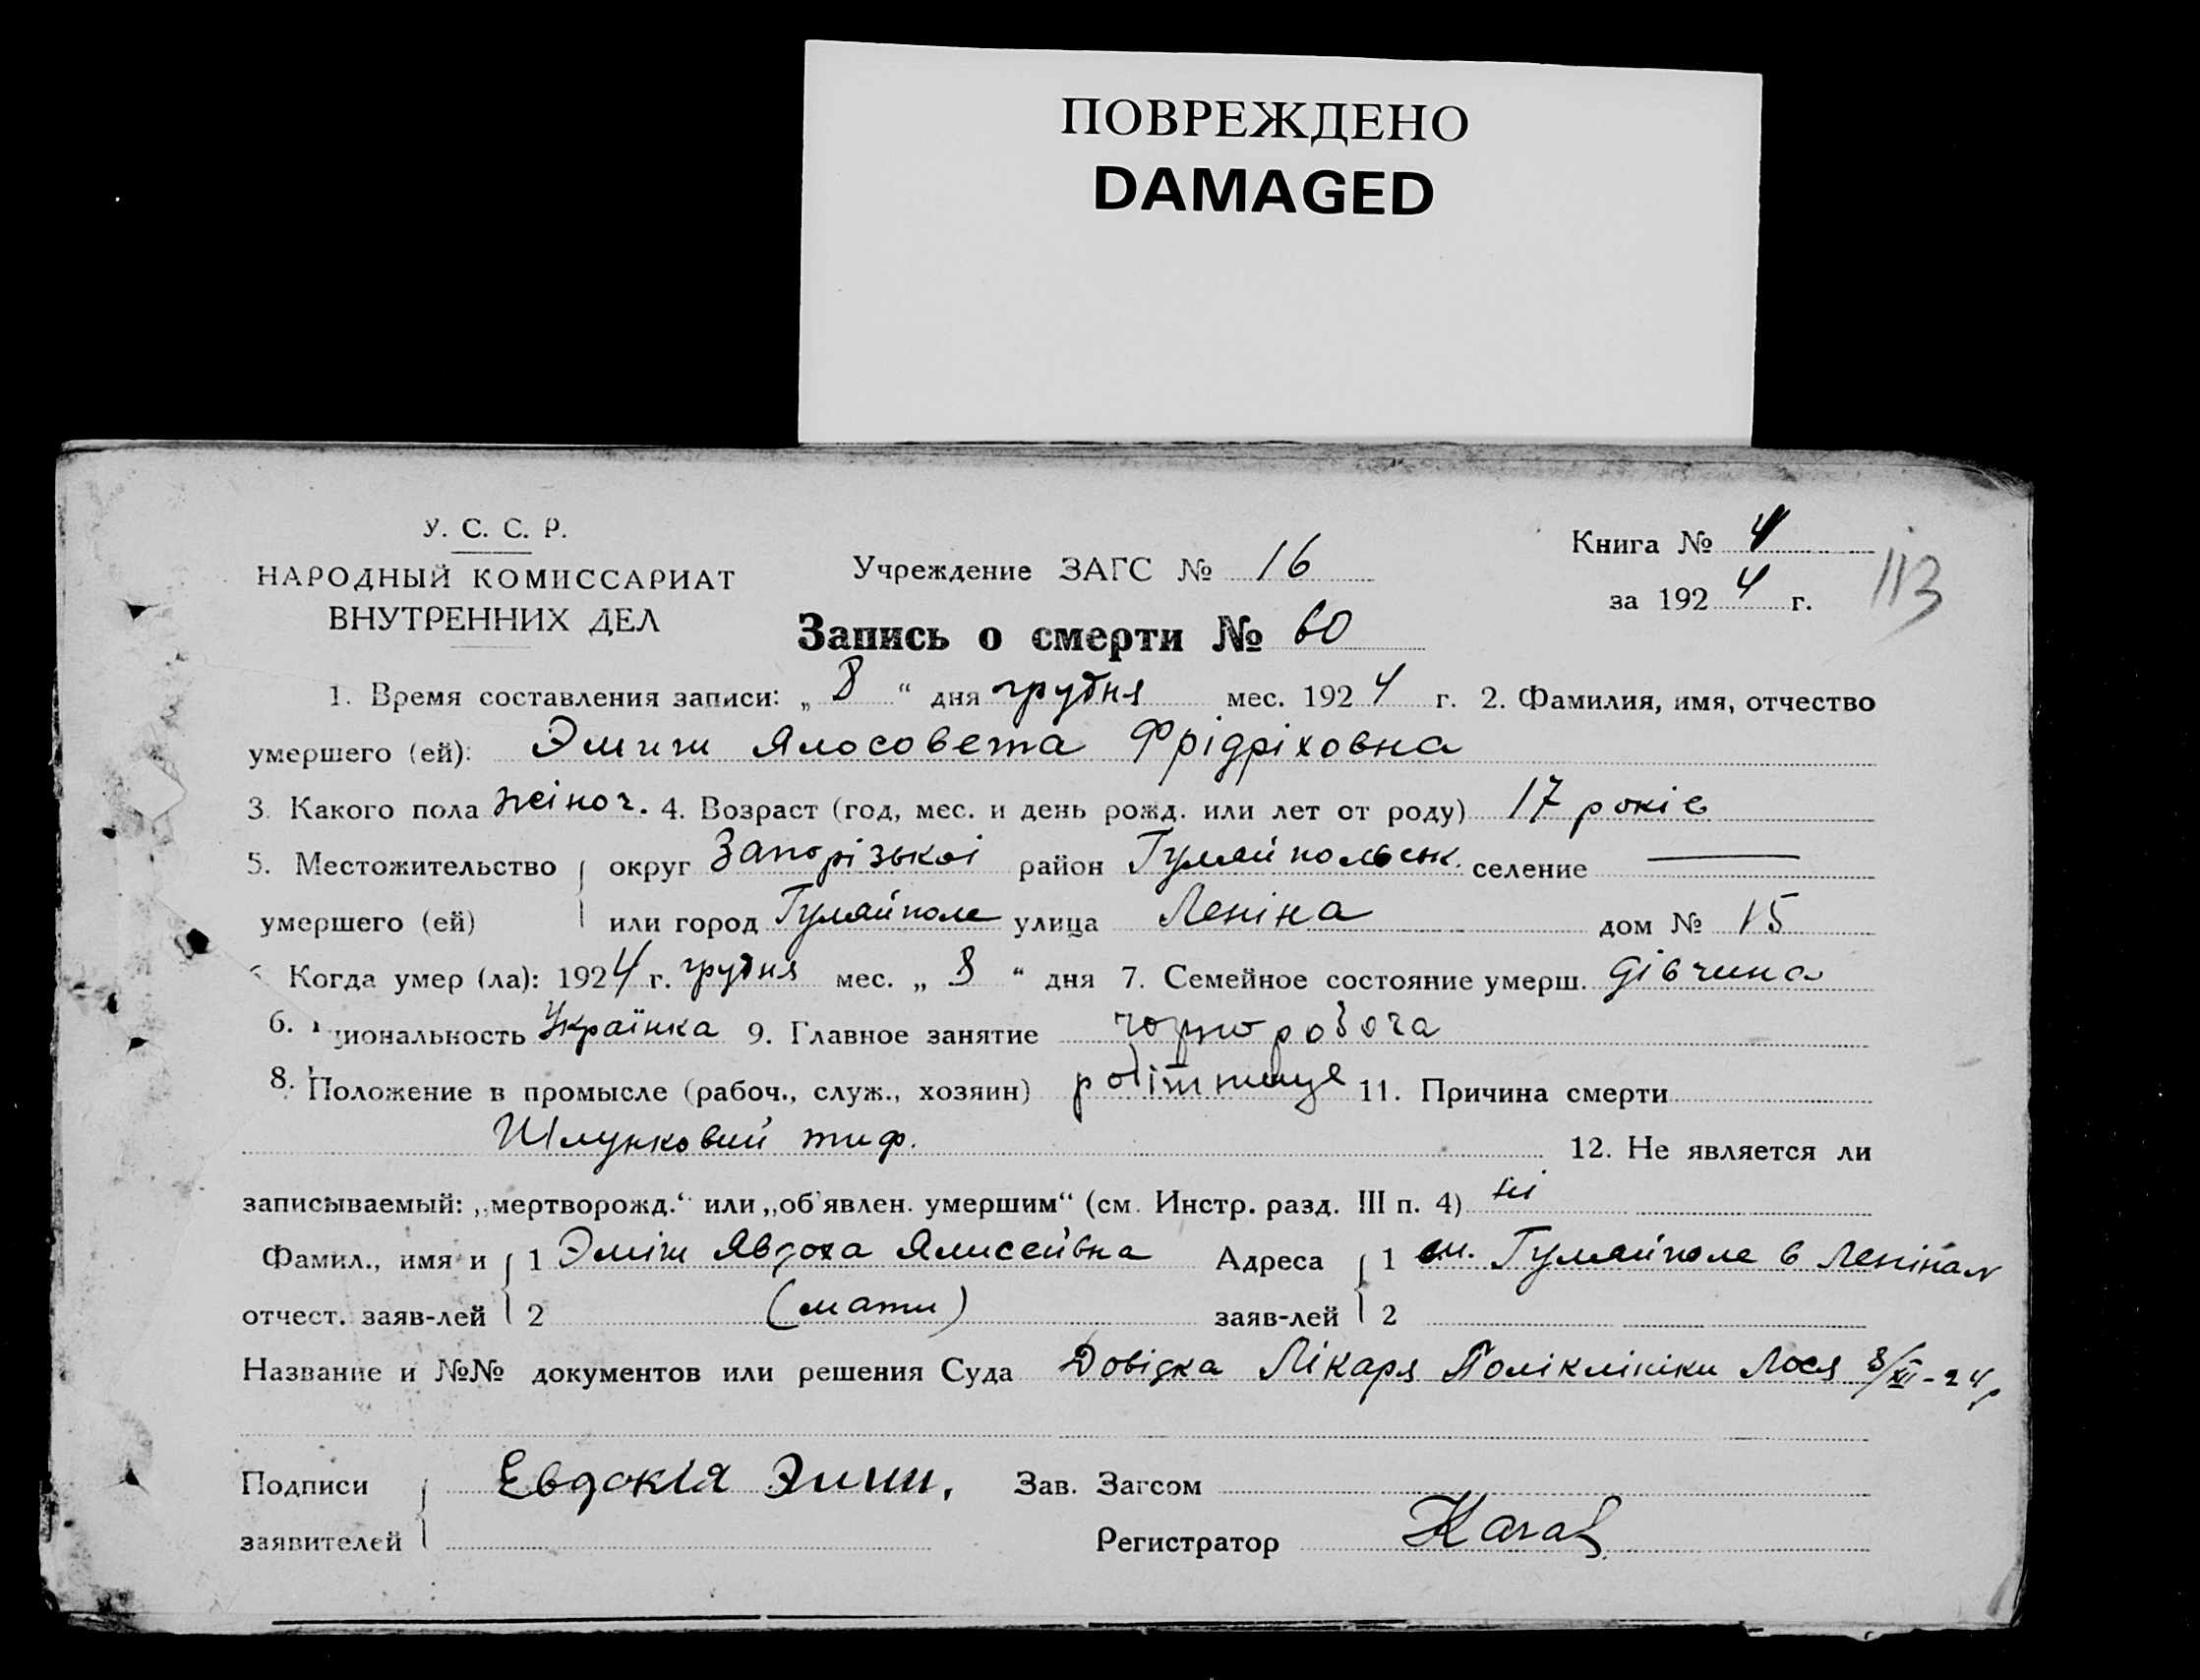 ПОВРЕЖДЕНО
DAMAGED
У. С. С. Р.
НАРОДНЫЙ КОМИССАРИАТ
ВНУТРЕННИХ ДЕЛ
Учреждение ЗАГС № 16
Книга № 4
за 1924 г.
113
Запись о смерти № 60
1. Время составления записи: „ 8 “ дня грудня мес. 1924 г. 2. Фамилия, имя, отчество
умершего (ей): Эмиш Ялосовета Фрідріховна
3. Какого пола жіноч. 4. Возраст (год, мес. и день рожд. или лет от роду) 17 років
5. Местожительство округ Запорізькоі район Гуляйпольськ. селение —
умершего (ей) или город Гуляйполе улица Леніна дом № 15
Когда умер (ла): 1924 г. грудня мес. „ 8 “ дня 7. Семейное состояние умерш. дівчина
6. циональность Українка 9. Главное занятие чорноробоча
8. Положение в промысле (рабоч., служ., хозяин) 11. Причина смерти
Шлунковий тиф. 12. Не является ли
записываемый: „мертворожд.“ или „об'явлен. умершим“ (см. Инстр. разд. III п. 4) ні
Фамил., имя и 1 Эміш Явдоха Ялисейвна Адреса 1 Гуляйполе в Леніна
отчест. заяв-лей 2 (мати) заяв-лей 2
Название и №№ документов или решения Суда Довідка Лікаря Поліклініки Лося 8/XII-24р
Подписи Евдокія Эмиш, Зав. Загсом
заявителей Регистратор